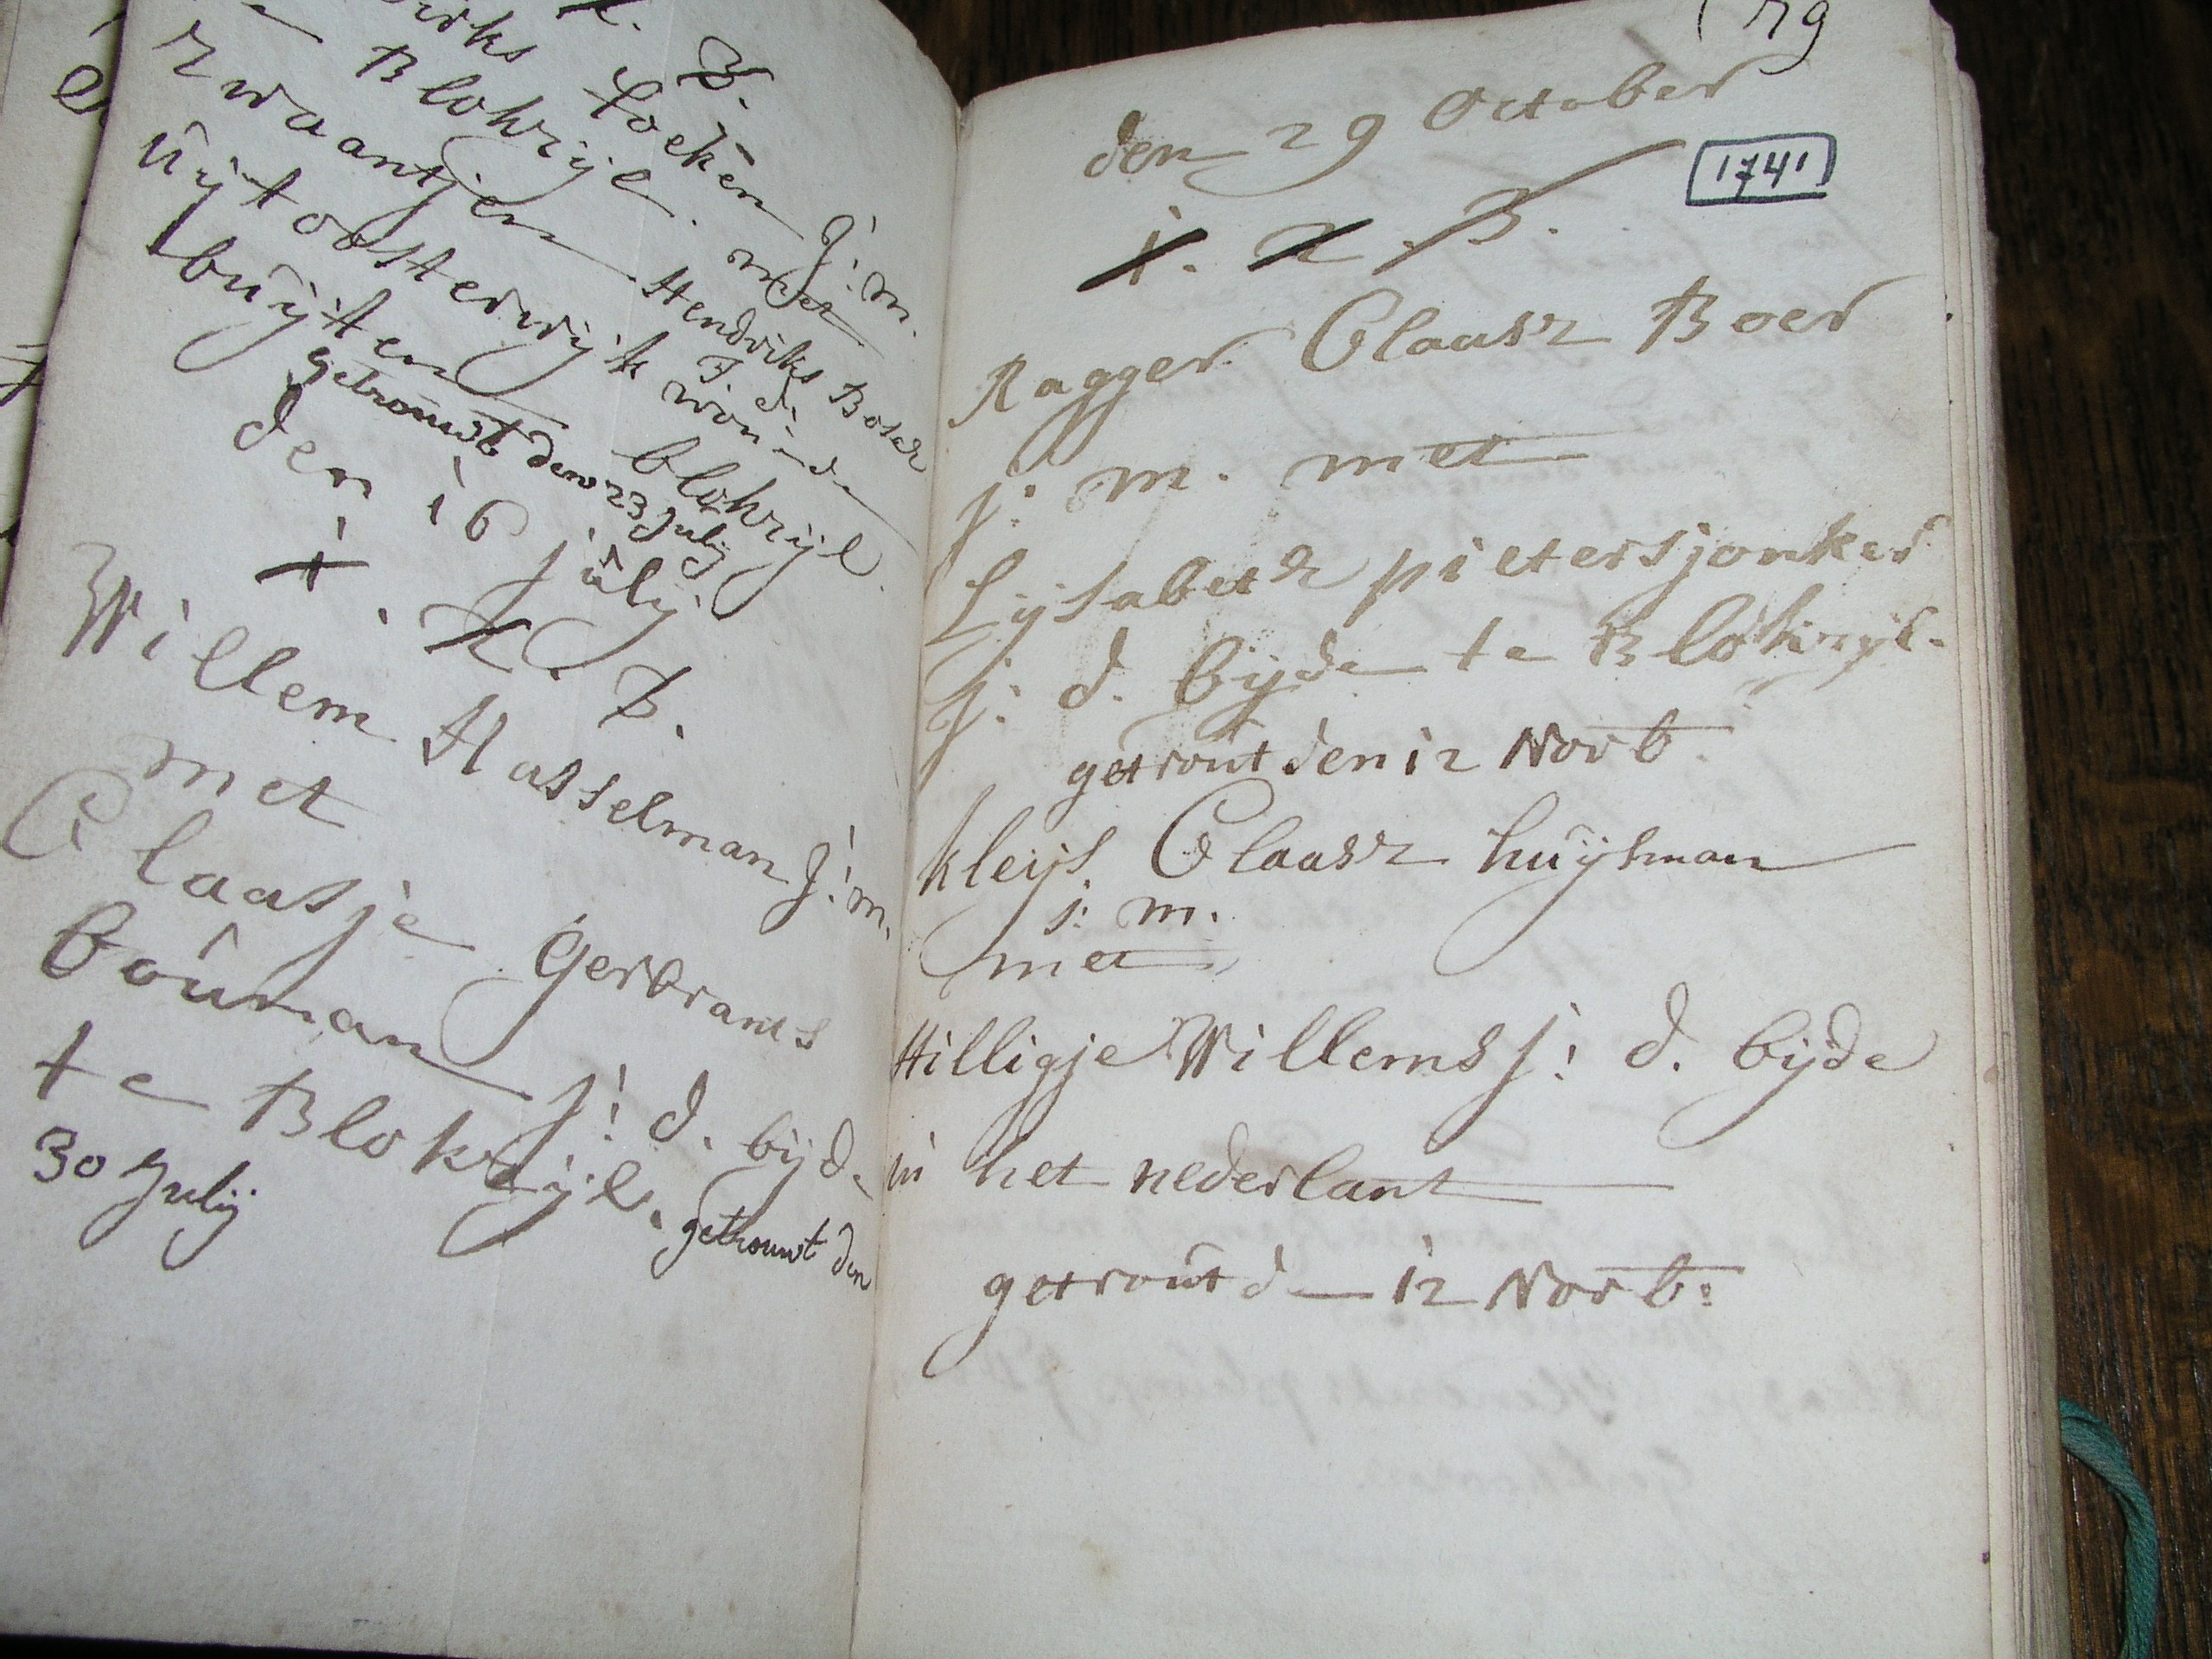 3.
Loeken j: m.
Blokzijl. met
Zwaantjen Hendriks Boser
j. d.
uijt oosterwijk wonende
buijten blokzijl.
getrouwt den 23 Julij
den 16 julij
1. 2. 3.
Willem Hasselman j: m.
met
Claasje Gerbrants
bouman j: d. bijde
te Blokzijl. getrouwt den
30 Julij
79
den 29 October
1741
1. 2. 3.
Ragger Claasz Boer
j: m. met
Lijsabeth pietersjonker
j: d. bijde te Blokzijl.
getrout den 12 Novb.
kleijs Claasz huijsman
j: m.
met
Hilligje Willems j: d. bijde
in het nederlant
getrout den 12 Novb: